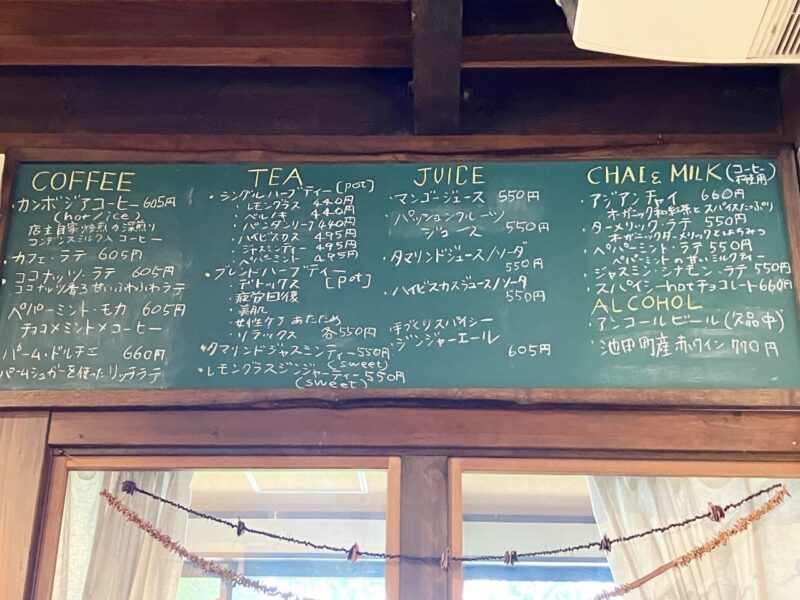 COFFEE
・カンボジアコーヒー 605円
(hot/ice)
店主自家焙煎の深煎り
コンデンスミルク入コーヒー
・カフェ・ラテ 605円
・ココナッツ・ラテ 605円
ココナッツ香る甘いふわふわラテ
ペパーミント・モカ 605円
チョコ×ミント×コーヒー
パーム・ドルチェ 660円
パームシュガーを使ったリッチラテ
TEA
・シングルハーブティー [pot]
・レモングラス 440円
・ベルノキ 440円
・パンダンリーフ 440円
・ハイビスカス 495円
・ジャスミン 495円
・ペパーミント 495円
・ブレンドハーブティー [pot]
・デトックス
・疲労回復
・美肌
・女性ケア あたため
・リラックス 各550円
・タマリンドジャスミンティー 550円
(sweet)
・レモングラスジンジャーティー 550円
(sweet)
JUICE
・マンゴージュース 550円
・パッションフルーツ
ジュース 550円
・タマリンドジュース/ソーダ
550円
・ハイビスカスジュース/ソーダ
550円
手づくりスパイシー
・ジンジャーエール
605円
CHAI & MILK (コーヒー不使用)
・アジアンチャイ 660円
オーガニック和紅茶とスパイスたっぷり
・ターメリック・ラテ 550円
オーガニックターメリックとはちみつ
・ペパーミント・ラテ 550円
ペパーミントの甘いミルクティー
・ジャスミン・シナモン・ラテ 550円
・スパイシーhotチョコレート 660円
ALCOHOL
・アンコールビール (欠品中)
・池田町産赤ワイン 770円